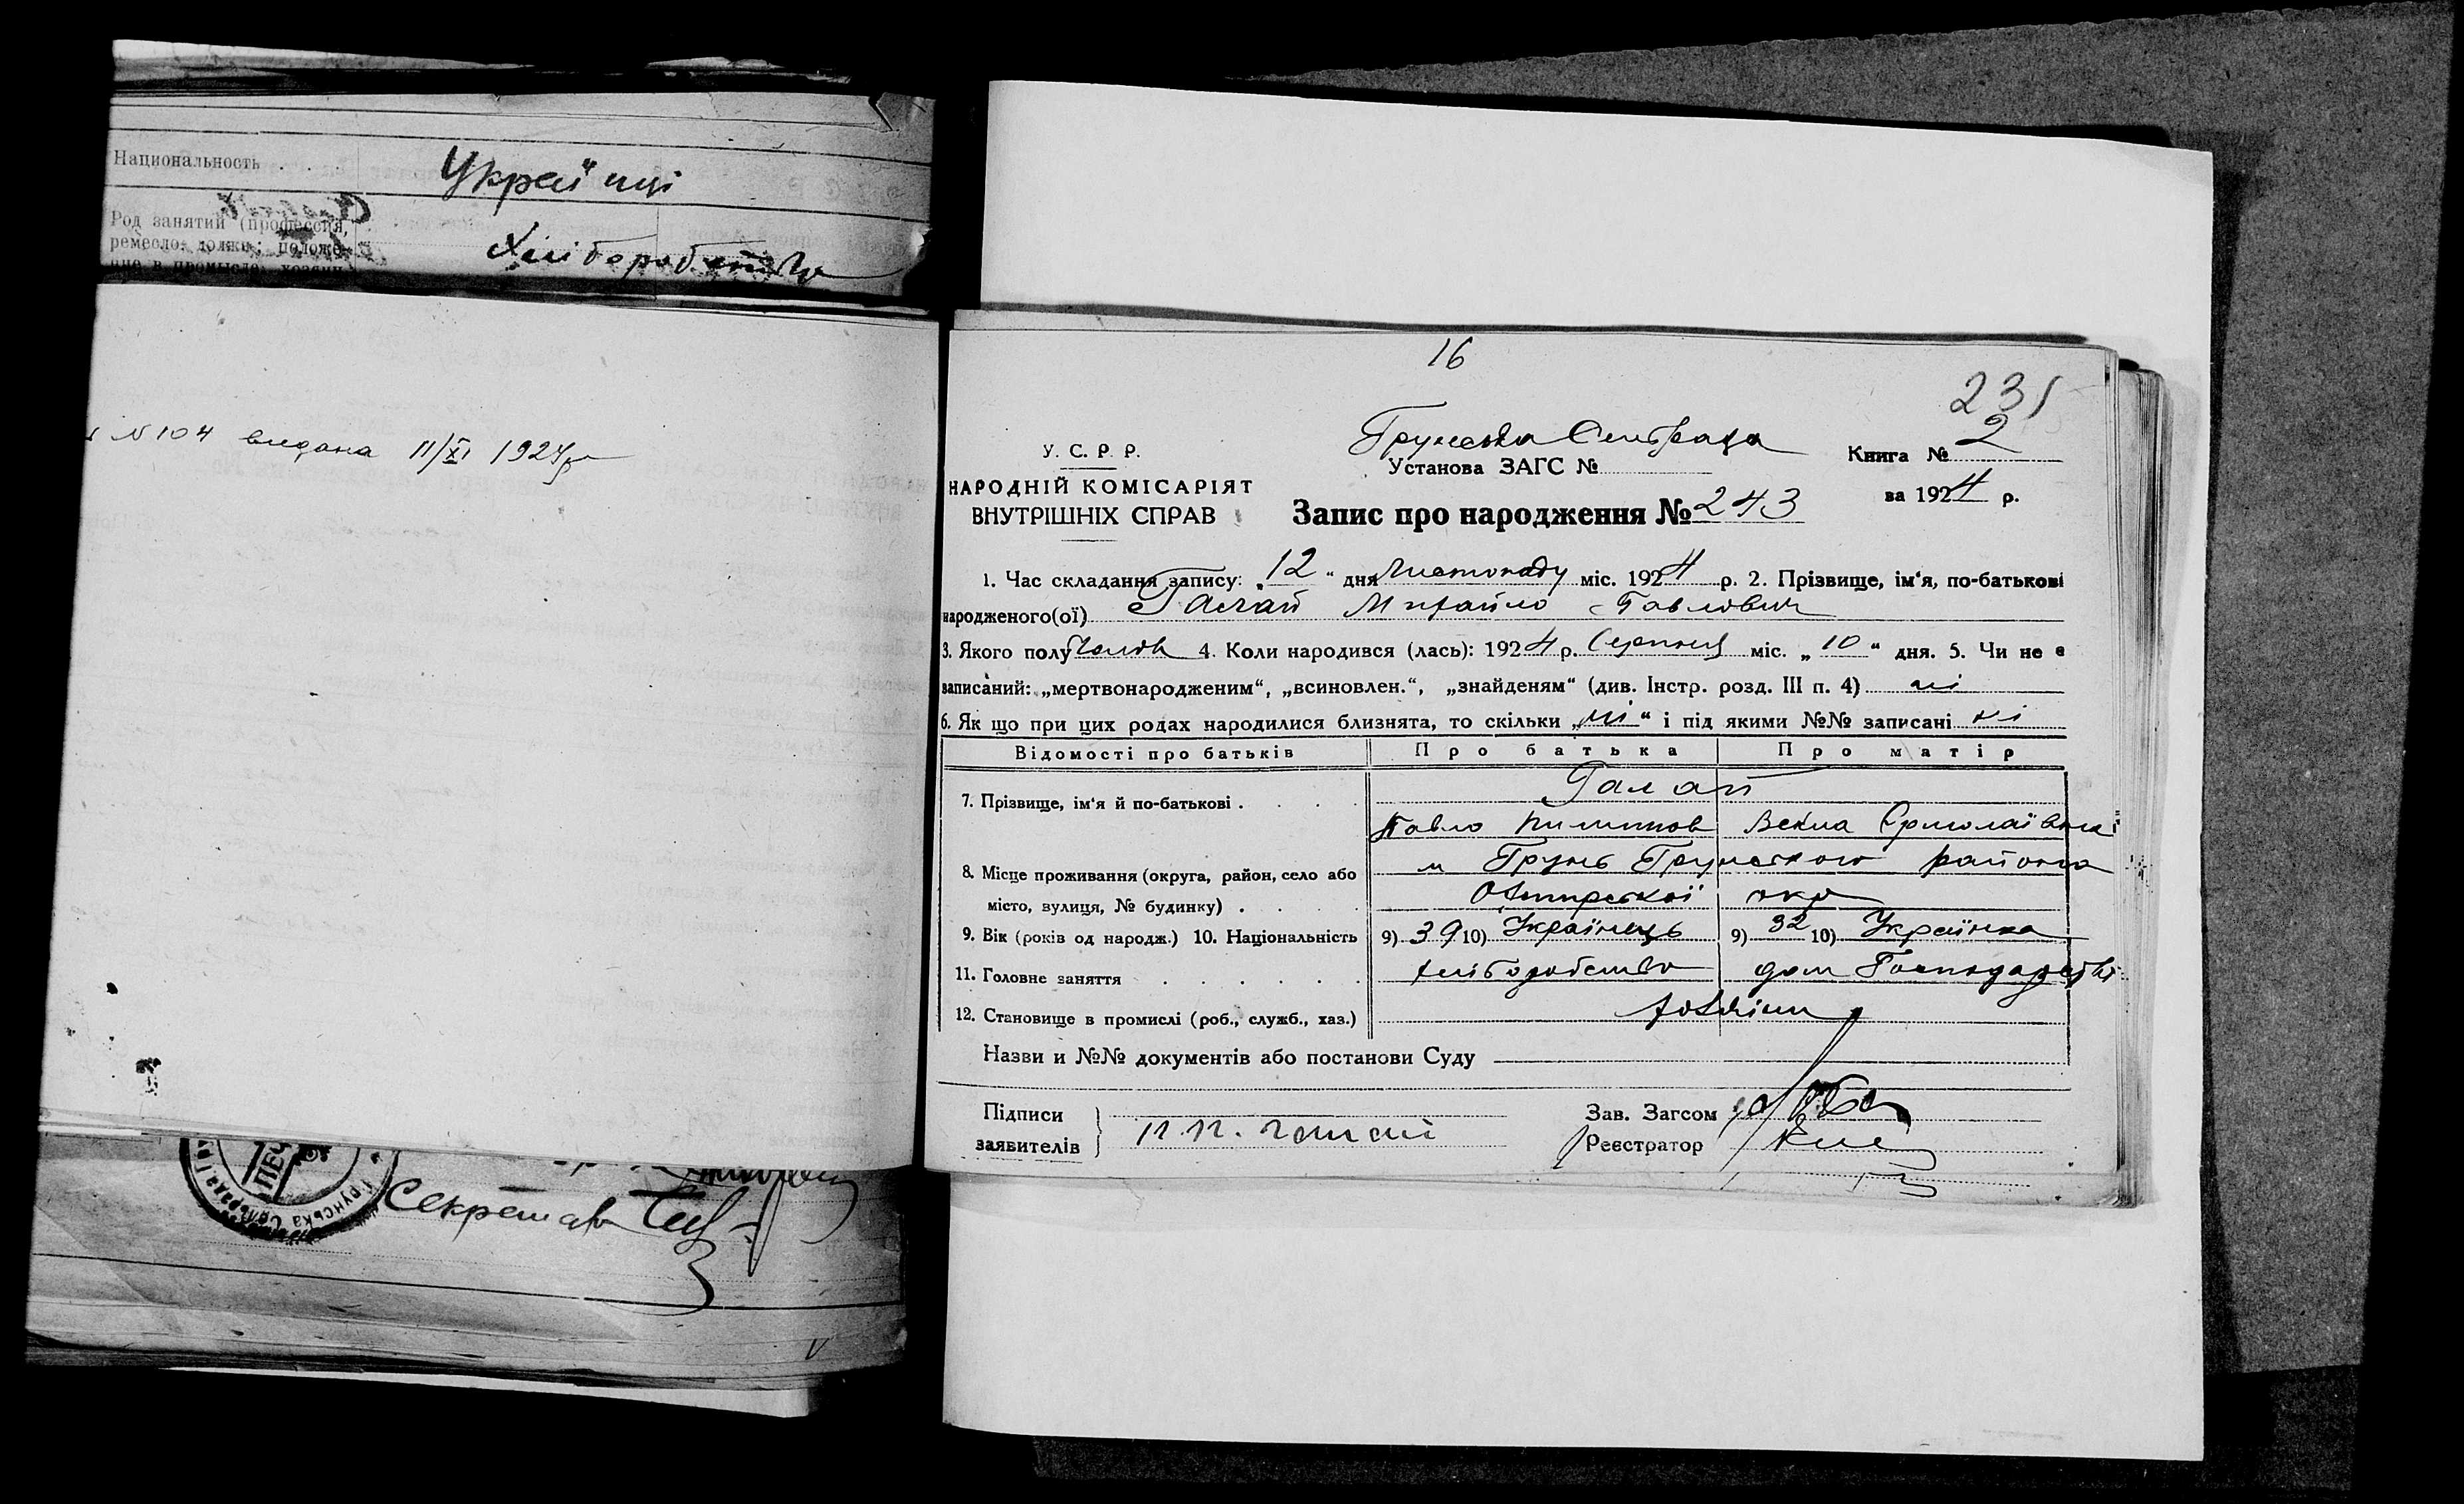 Национальность . . .
Украïнцi
Род занятий (профессия,
ремесло, должн.; положе-
ние в промысле, хозяин
Хліборобство
№ 104 видана 11/XI 1924 р
Секретар
Грунська Сельрада
16
231
Грунська Сельрада
У. С. Р. Р.
Установа ЗАГС №
Книга № 2
НАРОДНІЙ КОМІСАРІЯТ
ВНУТРІШНІХ СПРАВ
Запис про народження № 243
за 1924 р.
1. Час складання запису: „12“ дня Листопаду міс. 1924 р. 2. Прізвище, ім'я, по-батькові
народженого(ої) Галай Михайло Павлович
3. Якого полу чолов 4. Коли народився (лась): 1924 р. Серпня міс. „10“ дня. 5. Чи не є
записаний: „мертвонародженим“, „всиновлен.“, „знайденям“ (див. Інстр. розд. III п. 4) ні
6. Як що при цих родах народилися близнята, то скільки „ні“ і під якими №№ записані ні
Відомості про батьків Про батька Про матір
7. Прізвище, ім'я й по-батькові . . . .
Галай
Павло Пилипов Векла Ермолаївна
8. Місце проживання (округа, район, село або
місто, вулиця, № будинку) . . . .
м Грунь Грунського района
Охтирської окр
9. Вік (років од народж.) 10. Національність 9) 39 10) Українець 9) 32 10) Українка
11. Головне заняття . . . . . . хліборобство дом Господарстві
12. Становище в промислі (роб., служб., хаз.) хазяїни
Назви и №№ документів або постанови Суду
Підписи
заявителів
П.П. Галай
Зав. Загсом
Реєстратор